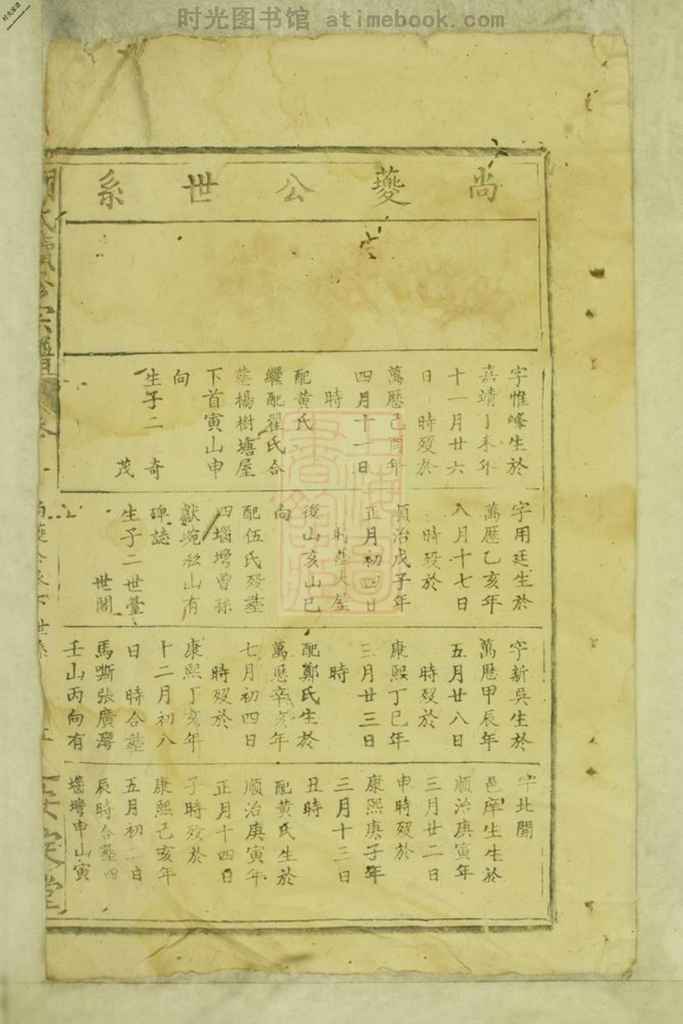 时光图书馆 atimebook.com
尚夔公世系
字惟峰生於
嘉靖丁未年
十一月廿六
日 時歿於
萬歷己酉年
四月十一日
時
配黃氏
繼配翟氏合
塟楊樹塘屋
下首寅山申
向
生子二 奇
茂
字用廷生於
萬歷乙亥年
八月十七日
時歿於
順治戊子年
正月初四日
後山亥山巳
向
配伍氏歿塟
四堖增曾孫
山有
碑誌
生子二世臺
世閣
字新吳生於
萬歷甲辰年
五月廿八日
時歿於
康熙丁巳年
三月廿三日
時
配鄭氏生於
萬歷辛亥年
七月初四日
時歿於
康熙丁亥年
十二月初八
日 時合塟
馬嘶張廣灣
壬山丙向有
字北開
邑庠生生於
順治庚寅年
三月廿二日
申時歿於
康熙庚子年
三月十三日
丑時
配黃氏生於
順治庚寅年
正月十四日
子時歿於
康熙己亥年
五月初一日
辰時合塟四
堖灣申山寅
氏續修宗譜